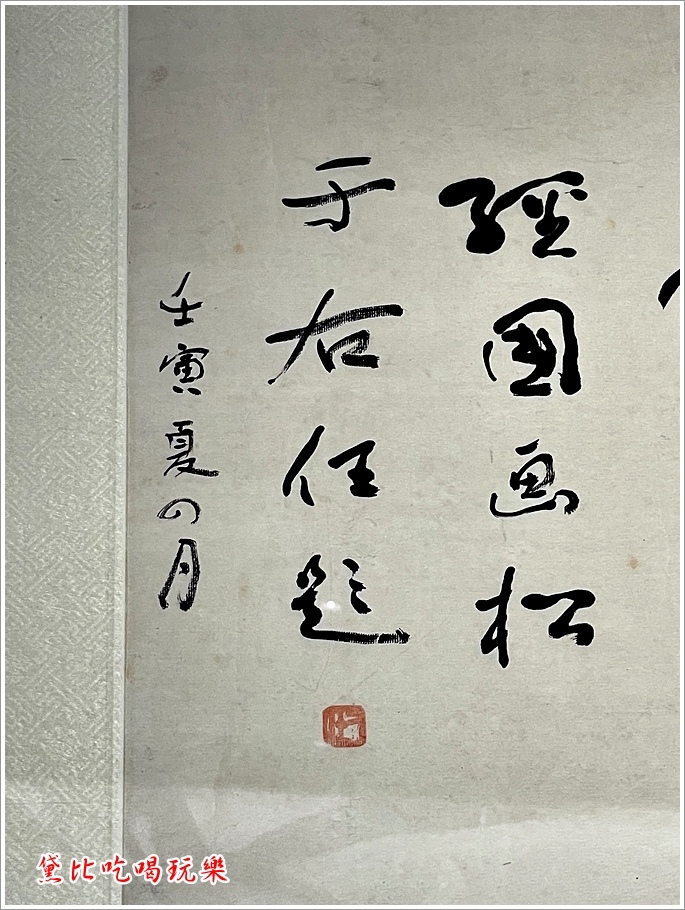 經國画松
于右任題
壬寅夏四月
黛比吃喝玩樂